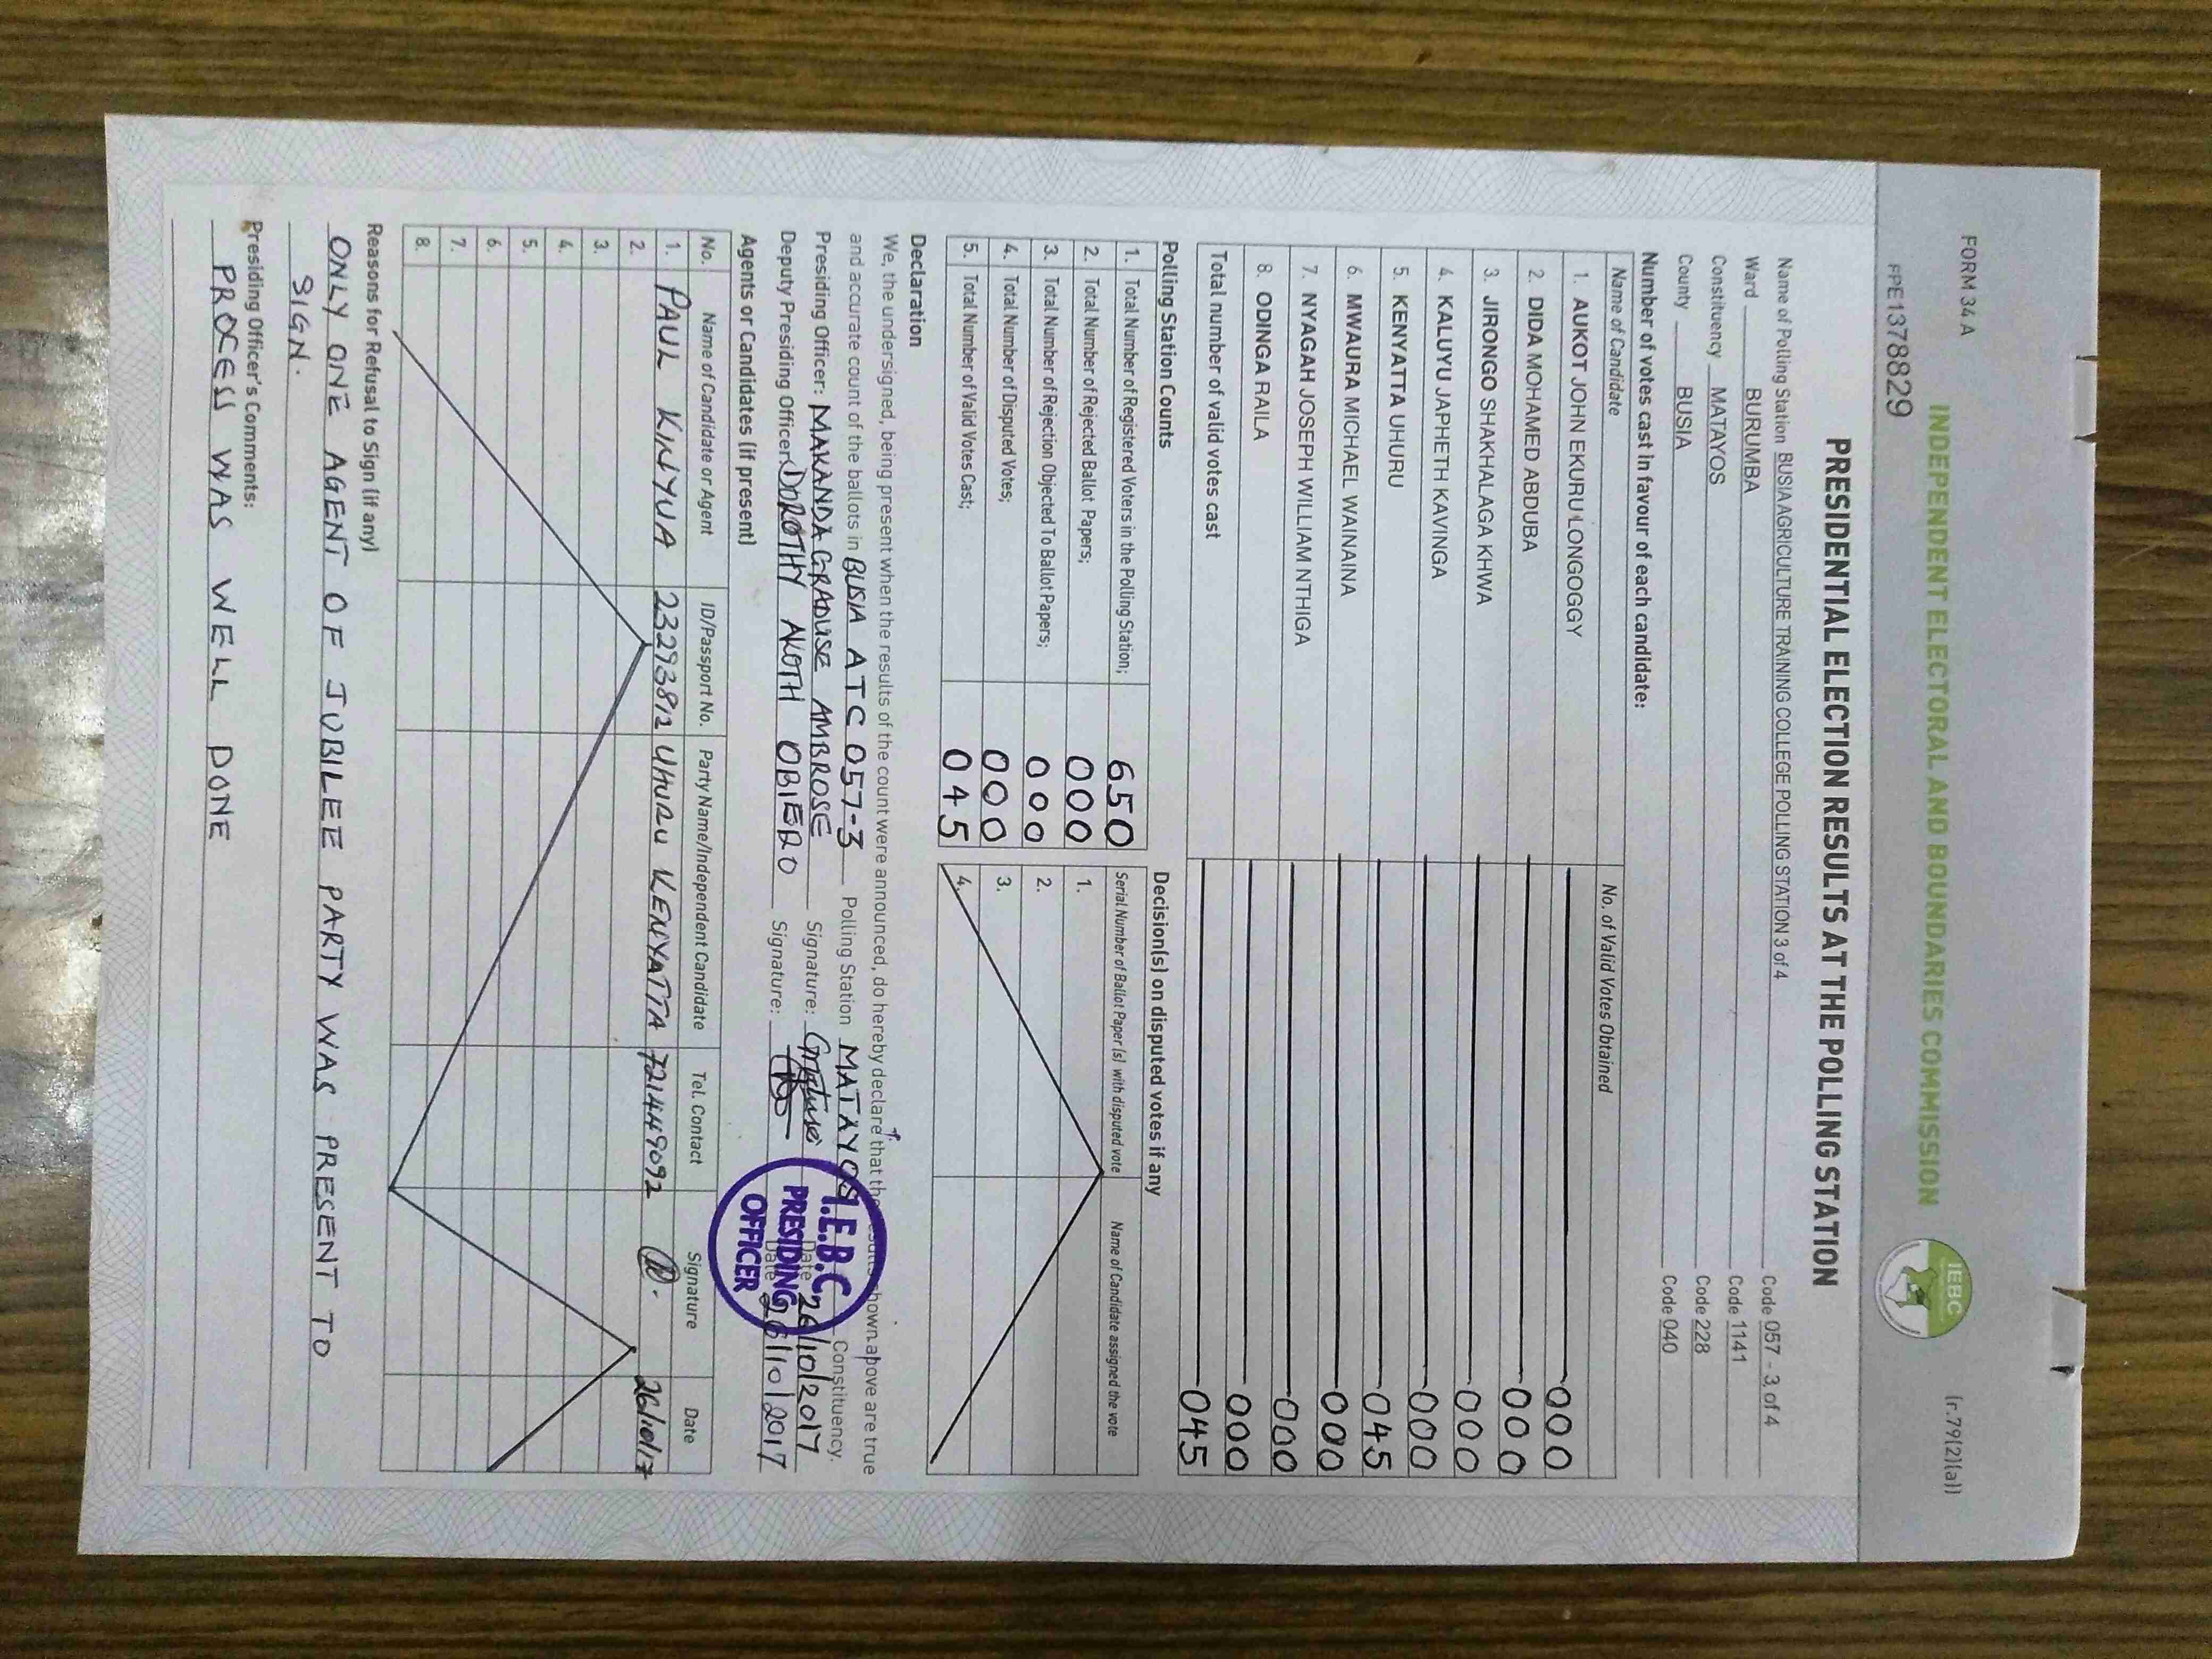 FORM 34 A
(r.79(2)(a))
INDEPENDENT ELECTORAL AND BOUNDARIES COMMISSION
IEBC
PPE1378829
PRESIDENTIAL ELECTION RESULTS AT THE POLLING STATION
Name of Polling Station BUSIA AGRICULTURE TRAINING COLLEGE POLLING STATION 3 of 4 Code 057 - 3 of 4
Ward BURUMBA Code 1141
Constituency MATAYOS Code 228
County BUSIA Code 040
Number of votes cast in favour of each candidate:
Name of Candidate No. of Valid Votes Obtained
1. AUKOT JOHN EKURU LONGOGGY 000
2. DIDA MOHAMED ABDUBA 000
3. JIRONGO SHAKHALAGA KHWA 000
4. KALUYU JAPHETH KAVINGA 000
5. KENYATTA UHURU 045
6. MWAURA MICHAEL WAINAINA 000
7. NYAGAH JOSEPH WILLIAM NTHIGA 000
8. ODINGA RAILA 000
Total number of valid votes cast 045
Polling Station Counts Decision(s) on disputed votes if any
1. Total Number of Registered Voters in the Polling Station; 650 Serial Number of Ballot Paper (s) with disputed vote Name of Candidate assigned the vote
2. Total Number of Rejected Ballot Papers; 000 1.
3. Total Number of Rejection Objected To Ballot Papers; 000 2.
4. Total Number of Disputed Votes; 000 3.
5. Total Number of Valid Votes Cast; 045 4.
Declaration
We, the undersigned, being present when the results of the count were announced, do hereby declare that the results shown above are true
and accurate count of the ballots in BUSIA ATC 057-3 Polling Station MATAYOS Constituency.
Presiding Officer: MAKANDA GRADUSE AMBROSE Signature: Date 26/10/2017
Deputy Presiding Officer: DOROTHY AKOTH OBIERO Signature: Date 26/10/2017
I.E.B.C
PRESIDING
OFFICER
Agents or Candidates (if present)
No. Name of Candidate or Agent ID/Passport No. Party Name/Independent Candidate Tel. Contact Signature Date
1. PAUL KINYUA 23293812 UHURU KENYATTA 721449092 26/10/17
2.
3.
4.
5.
6.
7.
8.
Reasons for Refusal to Sign (if any)
ONLY ONE AGENT OF JUBILEE PARTY WAS PRESENT TO
SIGN.
Presiding Officer's Comments:
PROCESS WAS WELL DONE